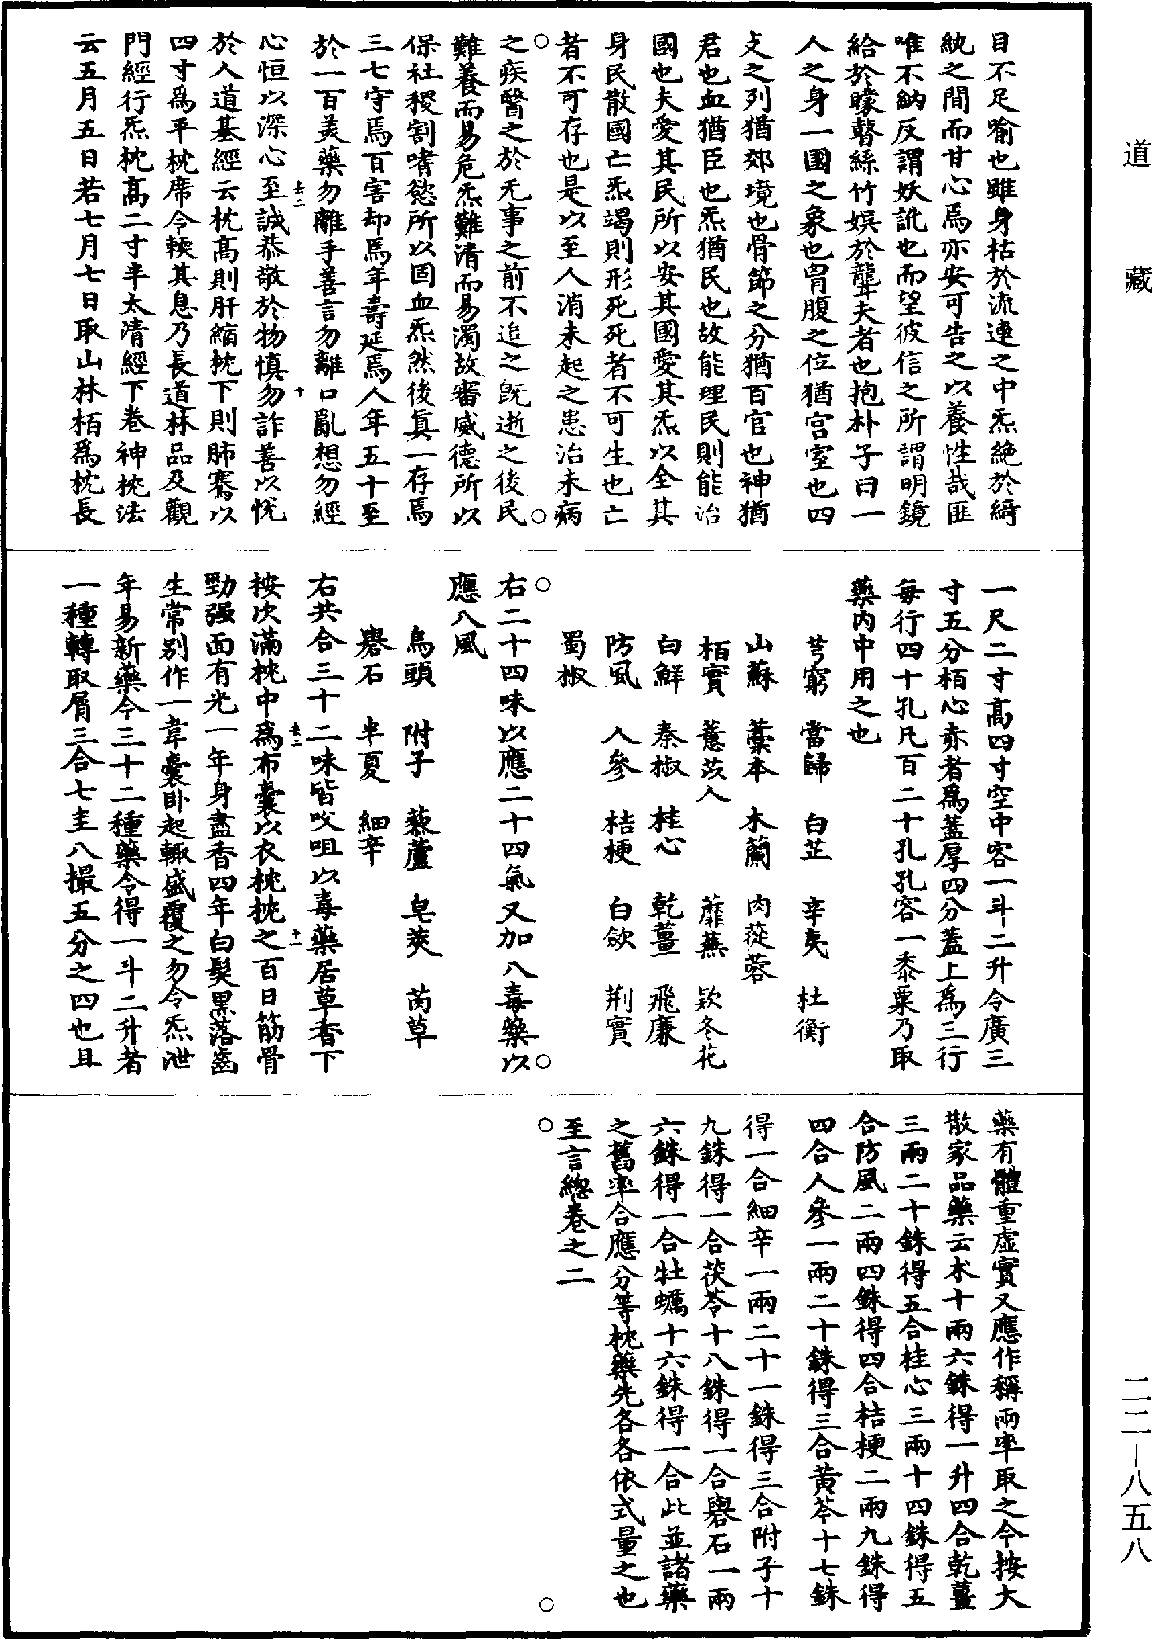 道藏
目不足喻也雖身枯於流連之中炁絶於綺
紈之間而甘心焉亦安可告之以養性哉匪
唯不納反謂妖訛也而望彼信之所謂明鏡
給於矇瞽絲竹娛於聾夫者也抱朴子曰一
人之身一國之象也胷腹之位猶宮室也四
攴之列猶郊境也骨節之分猶百官也神猶
君也血猶臣也炁猶民也故能理民則能治
國也夫愛其民所以安其國愛其炁以全其
身民散國亡炁竭則形死死者不可生也亡
者不可存也是以至人消未起之患治未病
之疾醫之於无事之前不追之旣逝之後民
難養而易危炁難清而易濁故審威德所以
保社稷割嗜慾所以固血炁然後眞一存焉
三七守焉百害却焉年壽延焉人年五十至
於一百美藥勿離手善言勿離口亂想勿經
心恒以深心至誠恭敬於物慎勿詐善以悅
於人道基經云枕高則肝縮枕下則肺騫以
四寸爲平枕席令輭其息乃長道林品及觀
門經行炁枕高二寸半太清經下卷神枕法
云五月五日若七月七日取山林栢爲枕長
去二
十
一尺二寸高四寸空中容一斗二升令廣三
寸五分栢心赤者爲蓋厚四分蓋上爲三行
每行四十孔凡百二十孔孔容一黍粟乃取
藥内中用之也
芎窮　當歸　白芷　辛夷　杜衡
山蘇　藁本　木蘭　肉蓯蓉
栢實　薏苡人　蘼蕪　欵冬花
白鮮　秦椒　桂心　乾薑　飛廉
防風　人參　桔梗　白歛　荆實
蜀椒
右二十四味以應二十四氣又加八毒藥以
應八風
烏頭　附子　藜蘆　皂莢　茵草
礜石　半夏　細辛
右共合三十二味皆㕮咀以毒藥居草香下
桉次滿枕中爲布囊以衣枕枕之百日筋骨
勁强面有光一年身盡香四年白髮黑落齒
生常别作一韋囊卧起輙盛覆之勿令炁泄
年易新藥今三十二種藥令得一斗二升者
一種轉取屑三合七圭八撮五分之四也且
去二
十一
藥有體重虚實又應作稱兩率取之今按大
散家品藥云术十兩六銖得一升四合乾薑
三兩二十銖得五合桂心三兩十四銖得五
合防風二兩四銖得四合桔梗二兩九銖得
四合人參一兩二十銖得三合黄芩十七銖
得一合細辛一兩二十一銖得三合附子十
九銖得一合茯苓十八銖得一合礜石一兩
六銖得一合牡蠣十六銖得一合此並諸藥
之舊率合應分等枕藥先各各依式量之也
至言總卷之二
二二—八五八